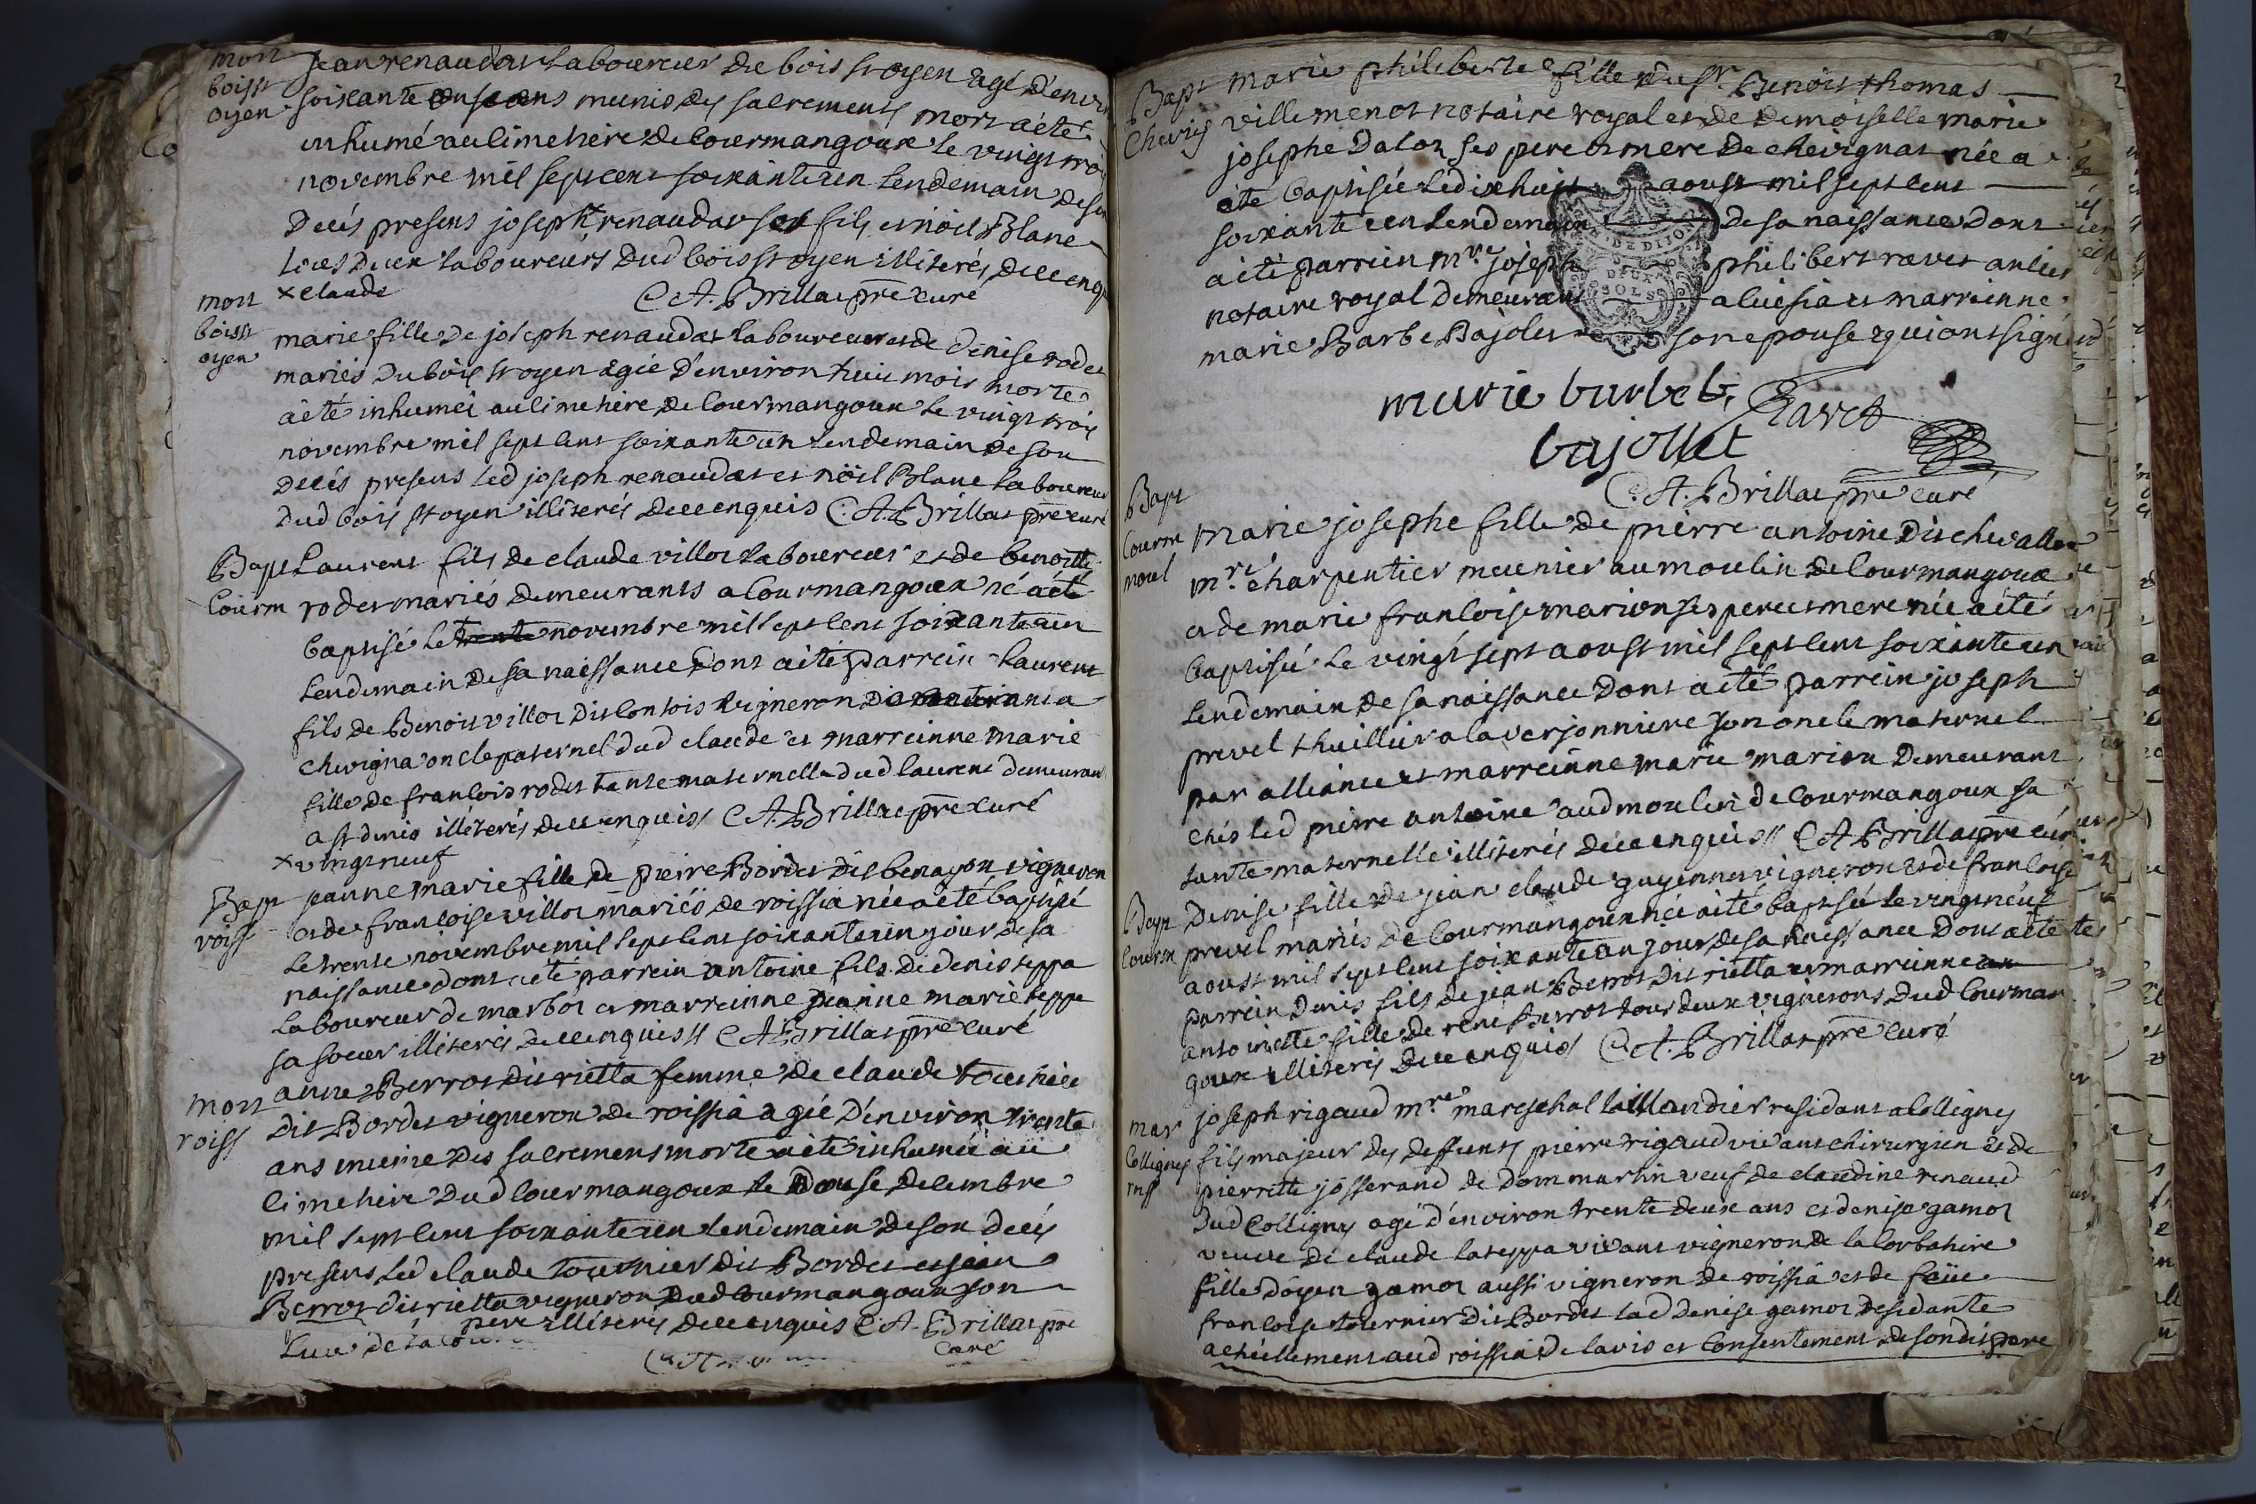 mort
boisst
oyen
Jean renaudat laboureur du bois st oyen agé d'environ
soixante onse ans munis des sacrements mort a été
inhumé au cimetière de Courmangoux le vingt trois
novembre mil sept cent soixante un lendemain de son
Decés presens joseph renaudat son fils et noël Blanc
tous deux laboureurs dud bois st oyen illiterés de ce enquis
x claude
C. A. Brillat pre curé
mort
boisst
oyen
marie fille de joseph renaudat laboureur et de denise rodet
mariés du bois st oyen agée d'environ huit mois morte
a été inhumée au cimetière de Courmangoux le vingt trois
novembre mil sept cent soixante un lendemain de son
decés presens led joseph renaudat et noël Blanc laboureur
dud bois st oyen illiterés de ce enquis C. A. Brillat pre curé
Bapt
Courm
Laurent fils de claude villot laboureur et de benoitte
rodet mariés demeurants a Courmangoux né a été
baptisé le trente novembre mil sept cent soixante un
lendemain de sa naissance dont a été parrein laurent
fils de Benoit villot dit Contois vigneron
chevigna oncle paternel dud claude et marreinne marie
fille de francois rodet tante maternelle dud laurent demeurant
a st denis illiterés de ce enquis C. A. Brillat pre curé
x vingt neuf
Bapt
roiss
jeanne marie fille de pierre Bordet dit benayon vigneron
et de francoise villot mariés de roissia née a été baptisée
le trente novembre mil sept cent soixante un jour de sa
naissance dont a été parrein antoine fils de denis teppa
laboureur de marbot et marreinne jeanne marie teppe
sa soeur illiterés de ce enquis C. A. Brillat pre curé
mort
roiss
anne Berrot dit rietta femme de claude tournier
dit Bordet vigneron de roissia agée d'environ trente
ans munie des sacremens morte a été inhumée au
cimetière dud Courmangoux le douse decembre
mil sept cent soixante un lendemain de son decés
presens led claude tournier dit Bordet et jean
Berrot dit rietta vigneron dud Courmangoux son
pere illiterés de ce enquis C. A. Brillat pre
curé
Bapt
Chevig
Marie philiberte fille du sr. Benoist thomas
villemenot notaire royal et de demoiselle marie
josephe Daloz ses pere et mere de chevignat née a
été baptisée le dix huit aoust mil sept cent
soixante un lendemain de sa naissance dont
a été parrein mre joseph philibert ravet ancien
notaire royal demeurant a cuisia et marrienne
marie Barbe Bajolet son epouse qui ont signé
DE DIJON
DEUX
SOLS
marie barbe b. Ravet
bajollet
C. A. Brillat pre curé
Bapt
Courm
moul
Marie josephe fille de pierre antoine dit chevallier
mre charpentier meunier au moulin de Courmangoux
et de marie francoise marion ses pere et mere née a été
baptisée le vingt sept aoust mil sept cent soixante un
lendemain de sa naissance dont a été parrein joseph
prevel thuillier a la verjonniere son oncle maternel
par alliance et marreinne marie marion demeurant
chés led pierre antoine aud moulin de Courmangoux sa
tante maternelle illiterés de ce enquis C. A. Brillat pre curé
Bapt
Courm
Denise fille de jean claude guyennet vigneron et de francoise
prevel mariés de Courmangoux née a été baptisée le vingt neuf
aoust mil sept cent soixante un jour de sa naissance dont a été
parrein denis fils de jean Berrot dit rietta et marreinne
antoinette fille de rené Berrot tous deux vignerons dud Courman
goux illiterés de ce enquis C. A. Brillat pre curé
mar
Colligney
joseph rigaud mre mareschal taillandier residant a Colligney
fils majeur des deffunts pierre rigaud vivant chirurgien et de
pierrette josserand de dommartin veuf de claudine renaud
dud Colligney agé d'environ trente deux ans et denise gamot
veuve de claude lateppa vivant vigneron de la Corbatiere
fille d'oyen gamot aussi vigneron de roissia et de feüe
francoise tournier dit Bordet lad denise gamot residante
actuellement aud roissia de lavis et Consentement de sondit pere